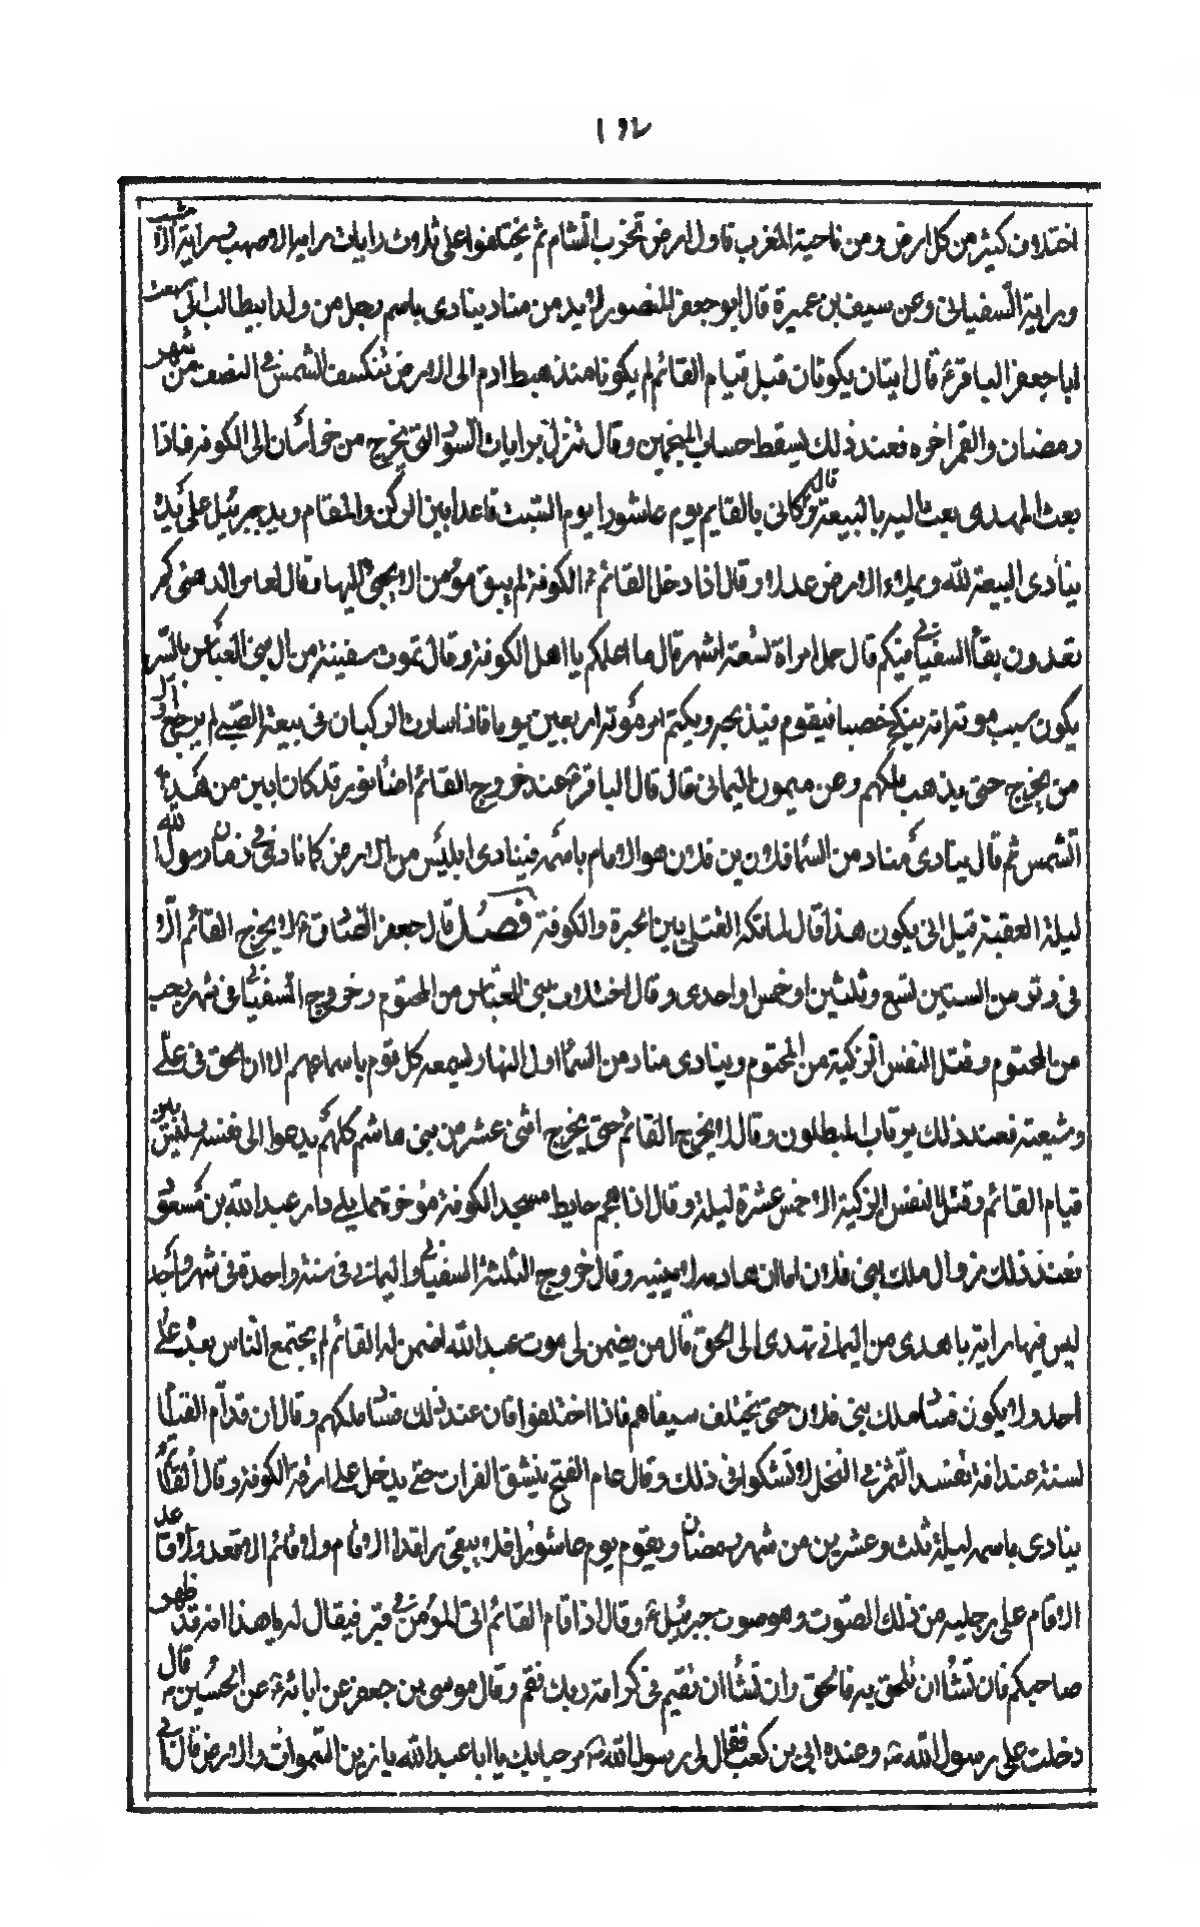 ١٩٢
اختلاف كثير من كل ارض ومن ناحية المغرب فاول ارض تخرب الشام ثم يختلفوا على ثلاث رايات راية الاصهب وراية الا
وراية السفياني وعن سيف بن عميرة قال ابو جعفر المنصور لا بد من مناد ينادى باسم رجل من ولد ابيطالب انى سمعت
ابا جعفر الباقر ع قال ايتان يكونان قبل قيام القائم لم يكونا منذ هبط ادم الى الارض تنكسف الشمس في النصف من شهر
رمضان والقمر اخره فعند ذلك يسقط حساب المنجمين وقال تنزل برايات السود التى يخرج من خراسان الى الكوفه فاذا
بعث المهدى بعث اليه بالبيعة قال كانى بالقايم يوم عاشورا يوم السبت قاعدا بين الركن والمقام ويد جبرئيل على يده
ينادى البيعة لله ويملاء الارض عدلا وقال اذا دخل القائم ع الكوفة لم يبق مؤمن الا يجئ اليها وقال لعمار الدهنى كم
تعدون بقأ السفياني فيكم قال حمل امراة تسعة اشهر قال ما اعلمكم يا اهل الكوفة وقال تموت سفينة من ال بنى العباس بالسر
يكون سبب موته انه ينكح خصيا فيقوم فيذبحه ويكتم موته اربعين يوما فاذا سارت الركبان فى بيعة الصبى لم يرجع اول
من يخرج حتى يذهب ملكهم وعن ميمون اليمانى قال قال الباقر ع عند خروج القائم اضا نور قد كان ابين من هذه
الشمس ثم قال ينادى مناد من السما فلان بن فلان هو الامام باسمه فينادى ابليس من الارض كما نادى في زمان رسول الله
ليلة العقبة قيل انى يكون هذا قال لمائكه القتلى بين الحيرة والكوفة فصل قال جعفر الصادق ع لا يخرج القائم الا
فى وتر من السنين تسع وثلثين او خمس او احدى وقال اختلاف بنى العباس من المحتوم وخروج السفياني فى شهر رجب
من المحتوم وقتل النفس الزكية من المحتوم وينادى مناد من السما اول النهار يسمعه كل قوم باسمائهم الا ان الحق فى على
وشيعته فعند ذلك يرتاب المبطلون وقال لا يخرج القائم حتى يخرج اثنى عشر من بنى هاشم كلهم يدعوا الى نفسه ليس بين
قيام القائم وقتل النفس الزكية الا خمس عشرة ليلة وقال اذا هدم حايط مسجد الكوفة مؤخره مما يلى دار عبد الله بن مسعود
فعند ذلك زوال ملك بنى فلان وقال خروج الثلثة السفياني واليمانى فى سنة واحدة فى شهر واحد
ليس فيها راية باهدى من اليمانى تهدى الى الحق قال من يضمن لى موت عبد الله اضمن له القائم لم يجتمع الناس بعده على
احد ولا يكون فساد ملك بنى فلان حتى يختلف سيفاهم فاذا اختلفوا فان عند ذلك فساد ملكهم وقال ان قدام القائم
لسنة غيداقة تفسد التمر في النخل لا تشكوا فى ذلك وقال عام الفتح ينشق الفرات حتى يدخل على ازقة الكوفة وقال القائم
ينادى باسمه ليلة ثلث وعشرين من شهر رمضان ويقوم يوم عاشورا فلا يبقى راقد الا قام ولا قائم الا قعد ولا قاعد
الا قام على رجليه من ذلك الصوت وهو صوت جبرئيل ع وقال اذا قام القائم اتى المؤمن في قبره فيقال له يا هذا انه قد ظهر
صاحبكم فان تشأ ان تلحق به فالحق وان تشأ ان تقيم فى كرامة ربك فقم وقال موسى بن جعفر عن ابائه ع عن الحسين ع قال
دخلت على رسول الله ص وعنده ابى بن كعب فقال لى رسول الله ص مرحبا بك يا ابا عبد الله يا زين السموات والارض قال ابى